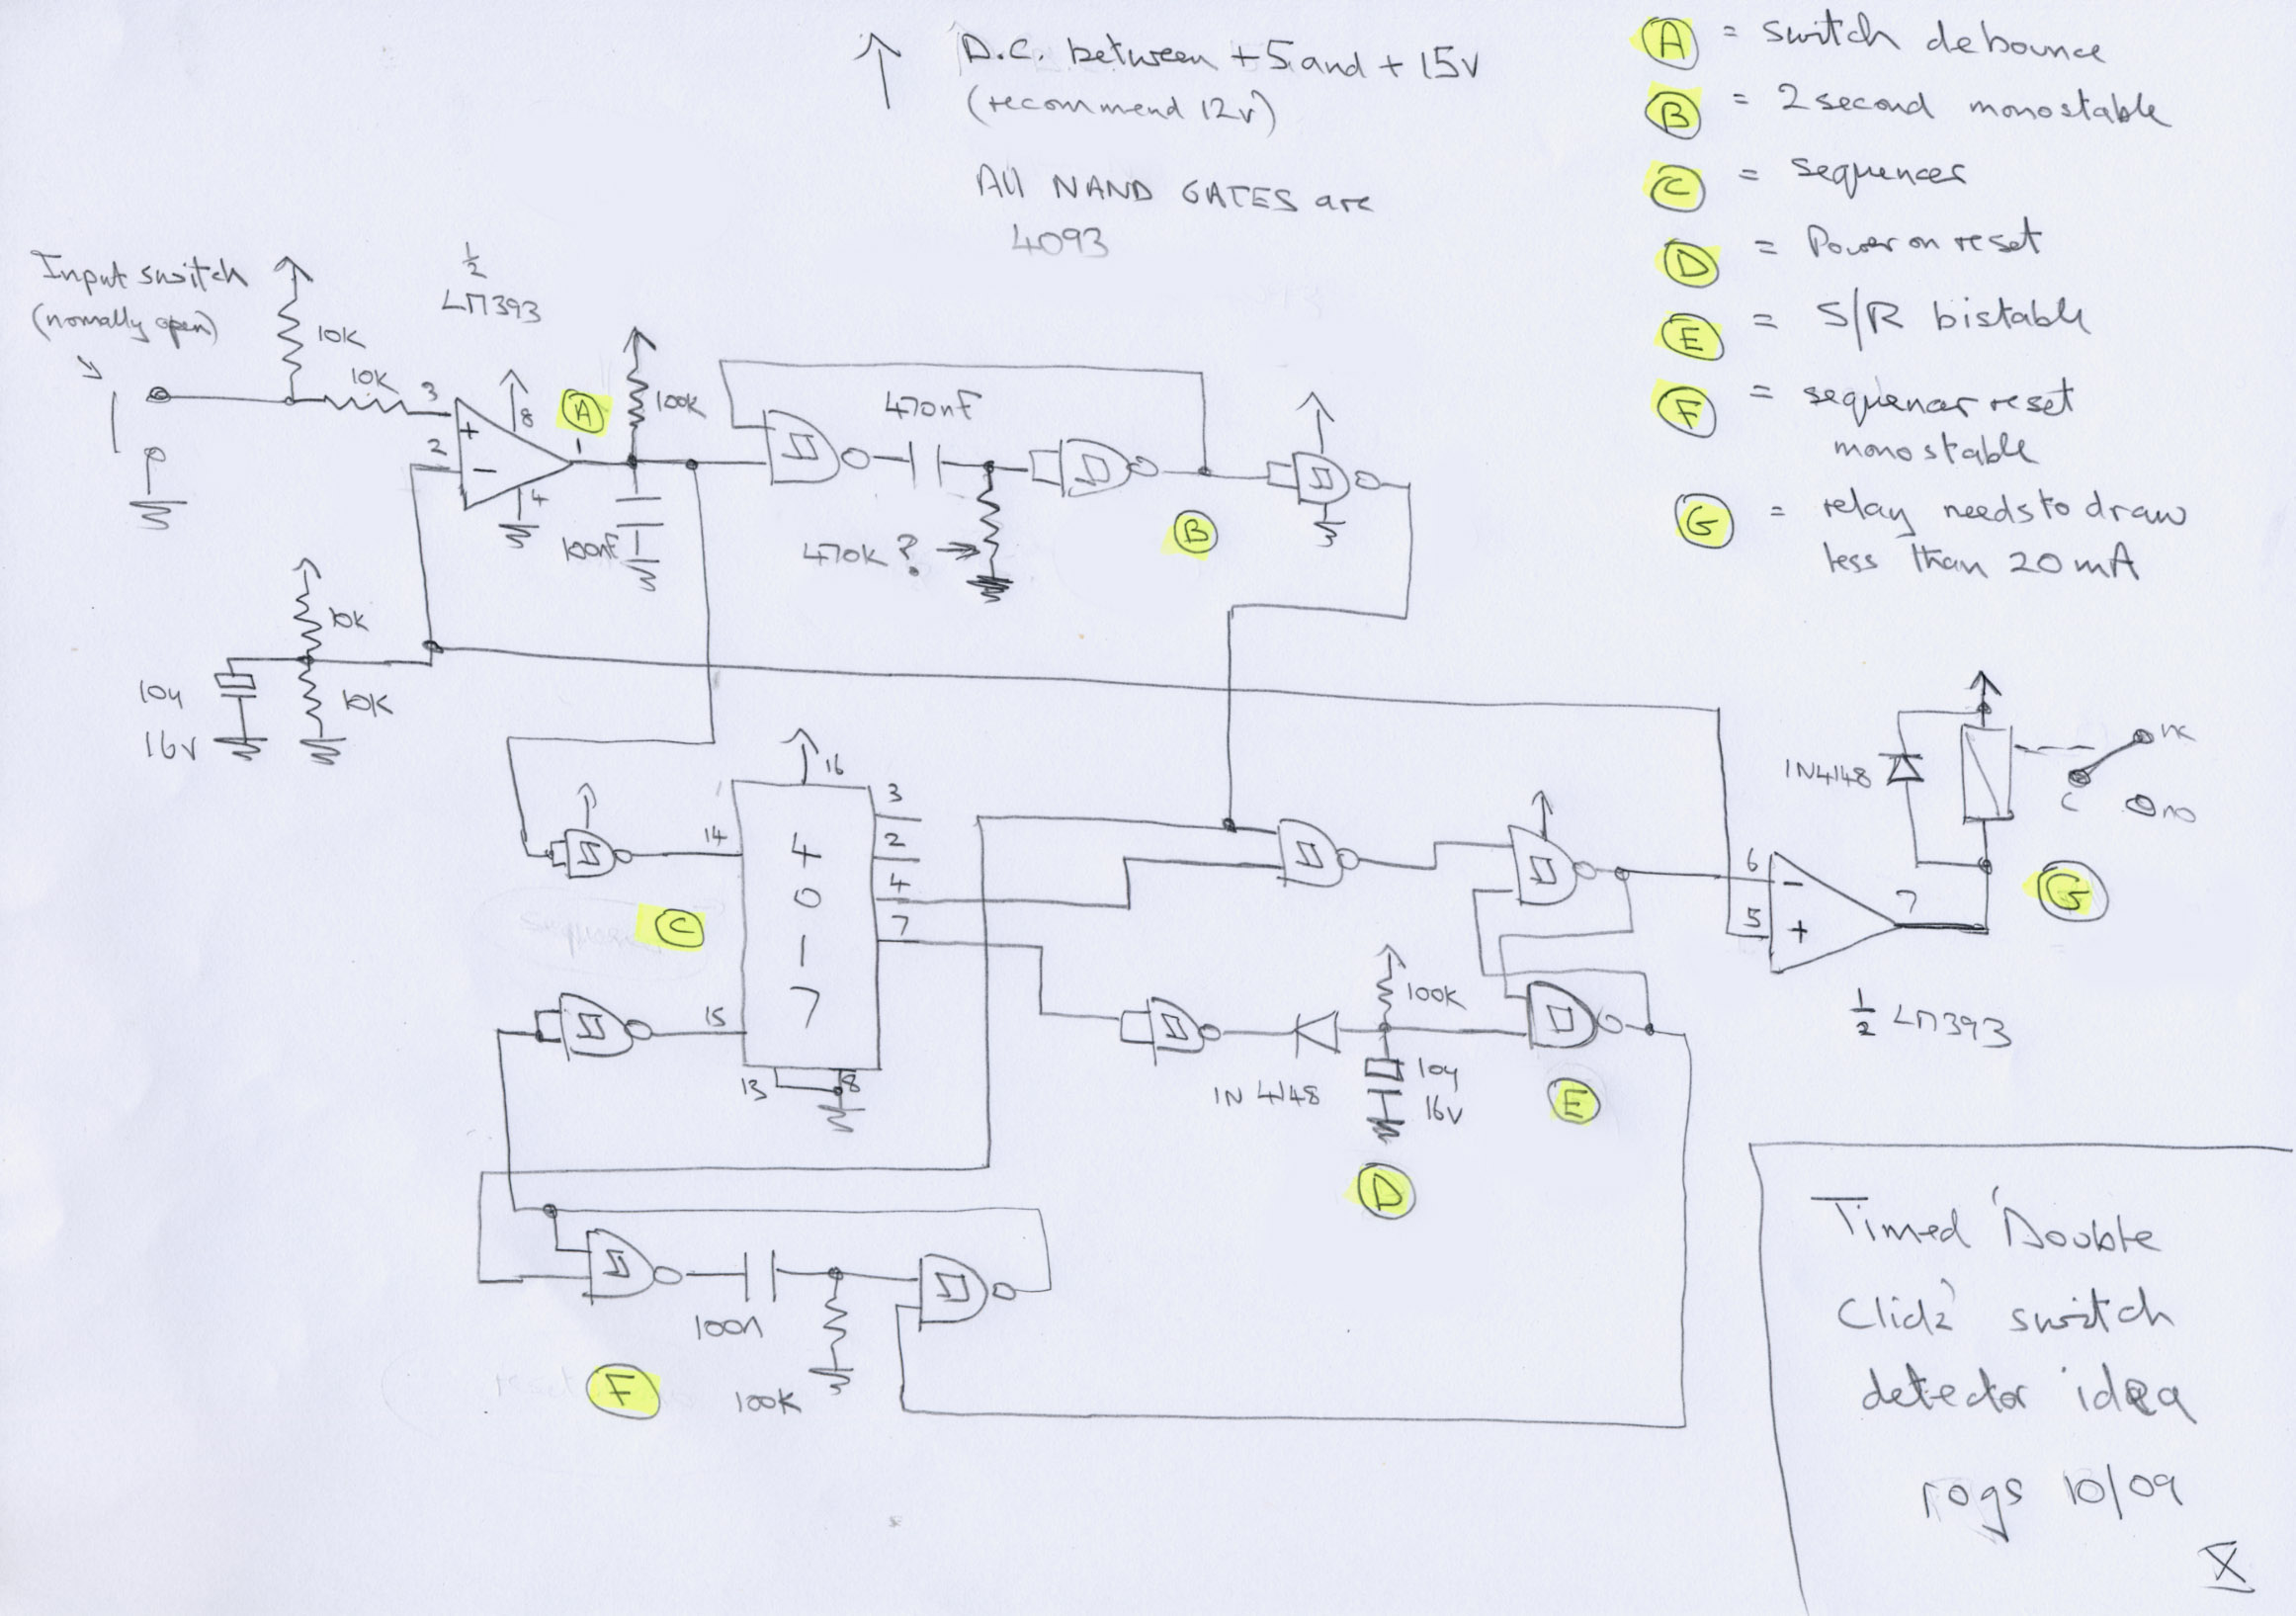 D.C. between +5 and +15v
(recommend 12v)
All NAND GATES are
4093
A = switch debounce
B = 2 second monostable
C = sequencer
D = Power on reset
E = S/R bistable
F = sequencer reset
monostable
G = relay needs to draw
less than 20mA
Input switch
(normally open)
10K
10K
1/2
LM393
3
2
8
1
4
A
100K
100nF
470nF
470K ?
B
10K
10K
10u
16v
16
14
15
13
8
3
2
4
7
4
0
1
7
C
1N 4148
100K
10u
16v
D
E
6
5
7
1/2 LM393
1N4148
nc
c
no
G
100n
100K
F
Timed 'Double
Click' switch
detector idea
rogs 10/09